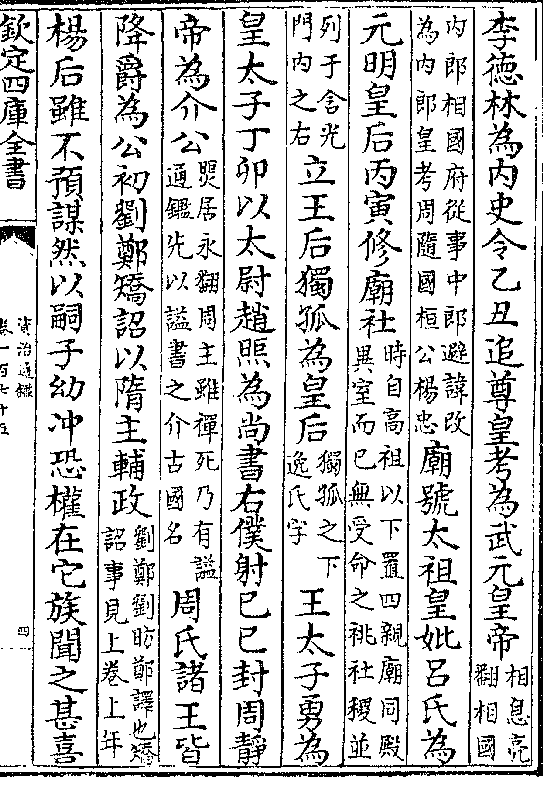 李德林為内史令乙丑追尊皇考為武元皇帝相息亮翻相國
内郎相國府從事中郎避諱改為内郎皇考周隨國桓公楊忠廟號太祖皇妣吕氏為
元明皇后丙寅修廟社時自髙祖以下置四親廟同殿異室而已無受命之祧社稷並
列于含光門内之右立王后獨狐為皇后獨狐之下逸氏字王太子勇為
皇太子丁卯以太尉趙煚為尚書右僕射巳巳封周靜
帝為介公煚居永翻周主雖禪死乃有謚通鑑先以謚書之介古國名周氏諸王皆
降爵為公初劉鄭矯詔以隋主輔政劉鄭劉昉鄭譯也矯詔事見上卷上年
楊后雖不預謀然以嗣子幼冲恐權在它族聞之甚喜
欽定四庫全書
資治通鑑
卷一百七十五
四